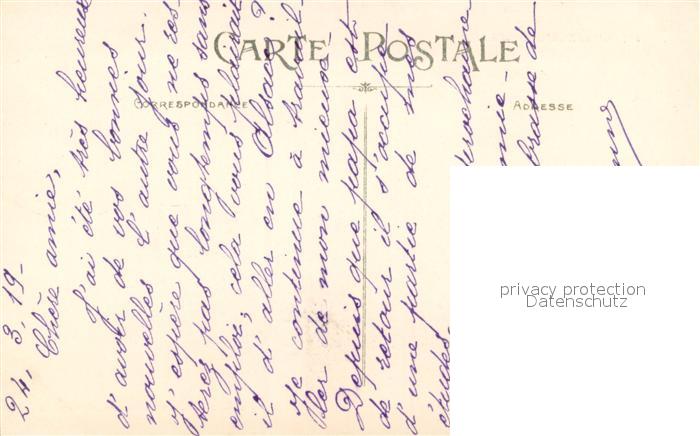 CARTE POSTALE
CORRESPONDANCE
ADRESSE
24. 3. 19-
Chère amie,
J'ai été très heureuse
d'avoir de vos bonnes
nouvelles l'autre jour.
J'espère que vous ne res-
terez pas longtemps sans
emploi; cela vous plairait
il d'aller en Alsace?
Je continue à travail-
ler de mon mieux.
Depuis que papa est
de retour il s'occupe
d'une partie de mes
études.
prochaine
de
privacy protection
Datenschutz